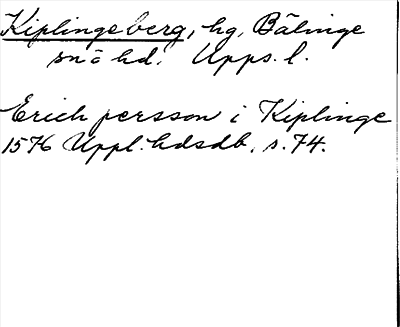 Kiplingeberg, hg, Bälinge
sn o hd. Upps. l.
Erich persson i Kiplinge
1576 Uppl. hdsdb, s. 74.